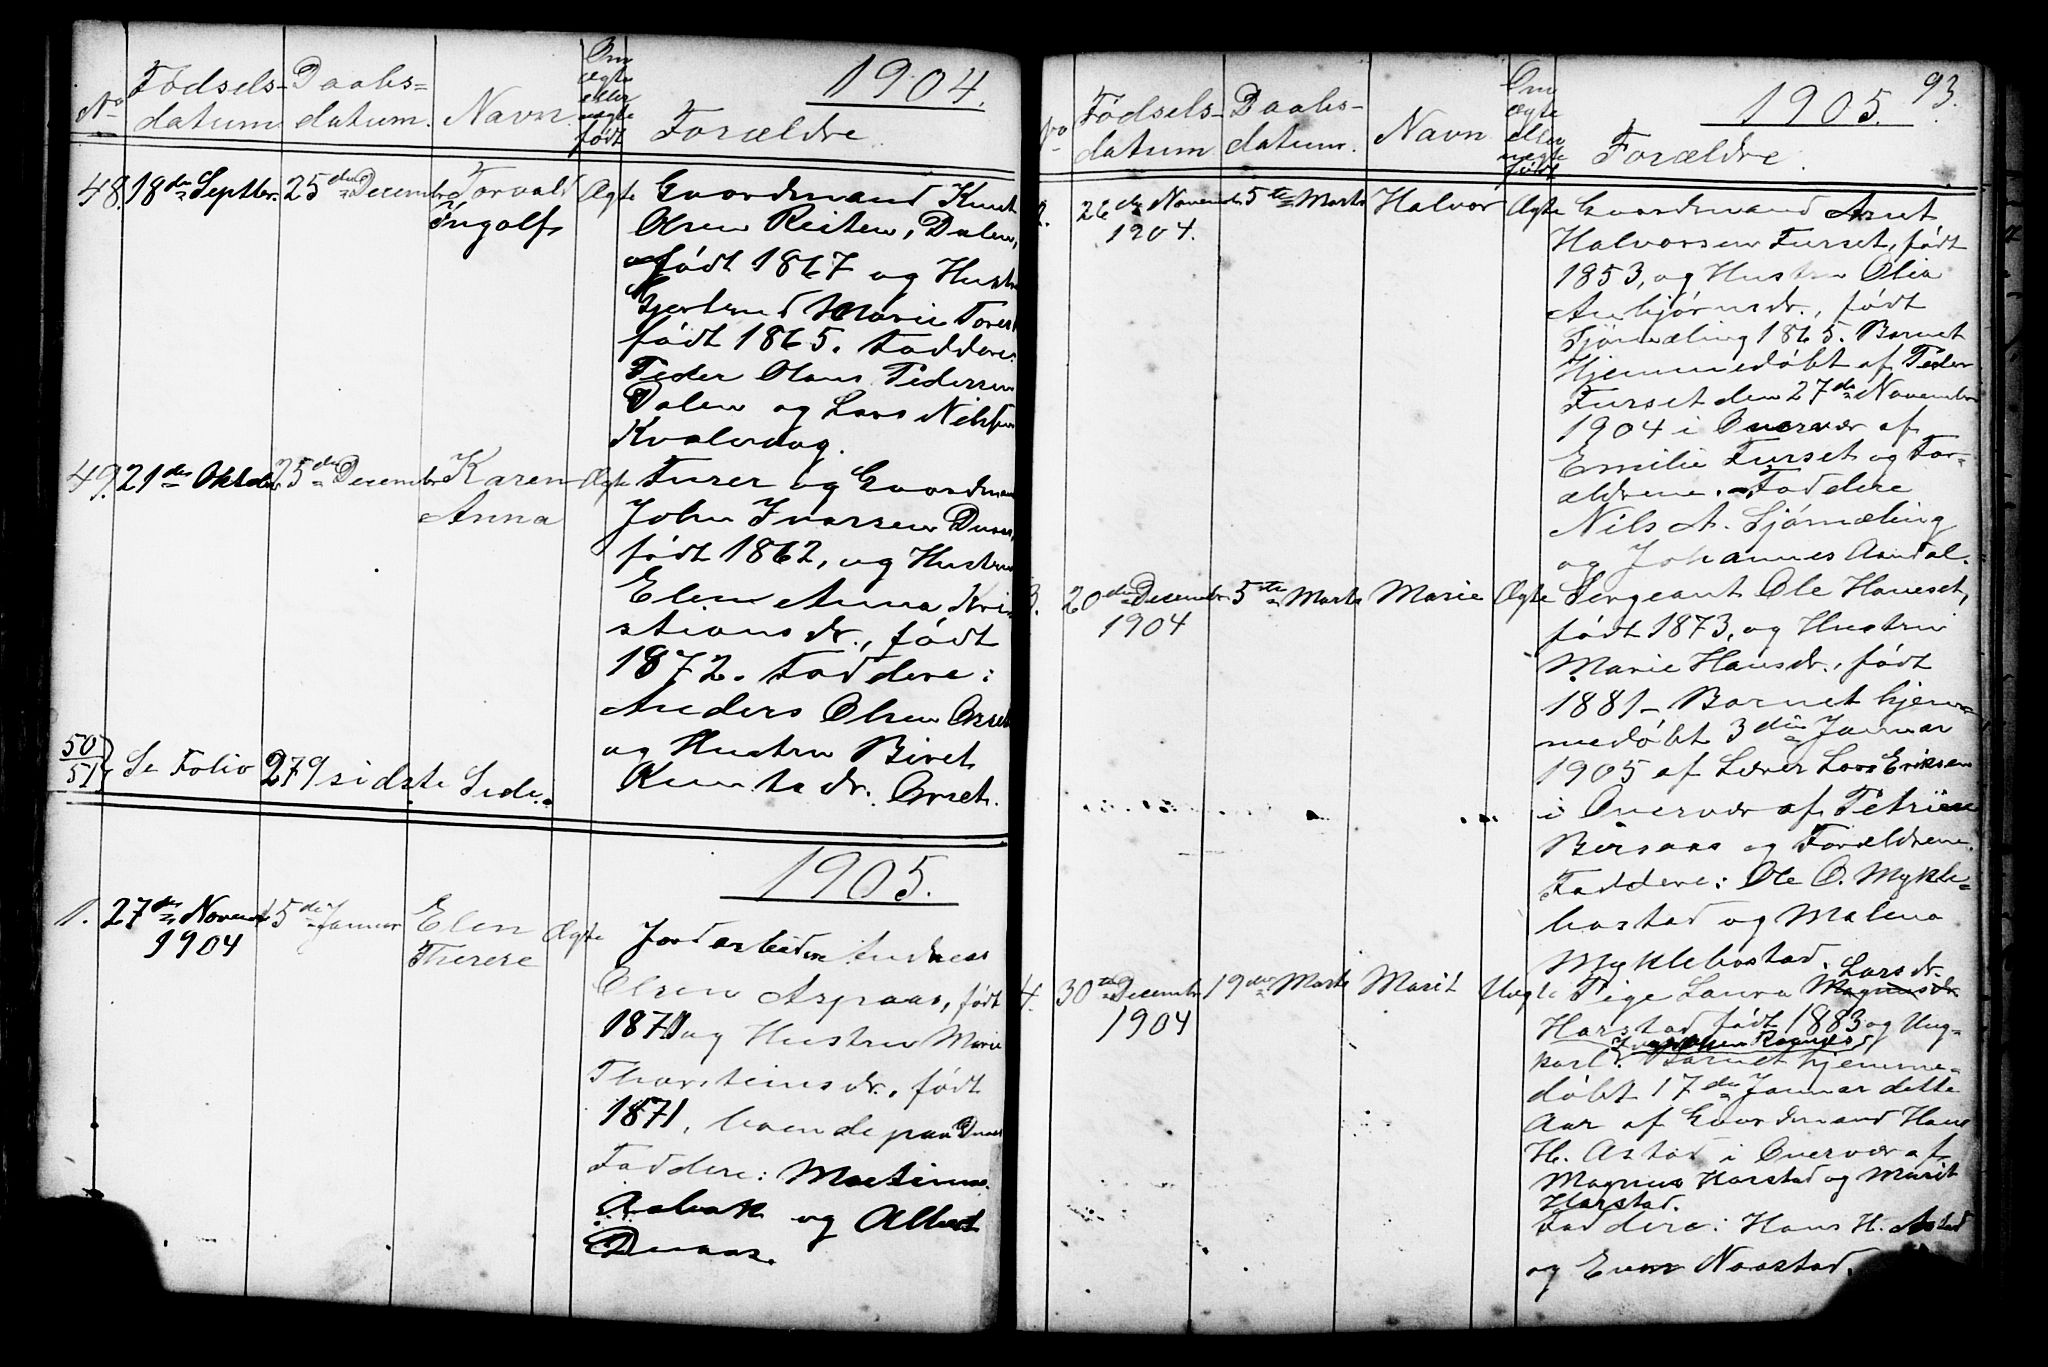 1904.
No
Fødsels-
datum
Daabs-
datum.
Navn
Om
ægte
eller
uægte
født
Forældre
48. 18de Septbr. 25de Decembr Torvald Ægte Gaardmand Knut
Ingolf Olsen Reiten, Dalen,
født 1867 og Hustru
Gjertrud Marie Tores
født 1865. Faddere:
Peder Olaus Pedersen
Dalen og Lars Nilsen
Kvalvaag.
49. 21de Oktober 25de Decembr Karen Ægte Furer og Gaardman
Anna John Ivarsen
født 1862, og Hustru
Elen Anna Kri
stiansdr., født
1872. Faddere:
Anders Olsen Orset
og Hustru Biret
Knutsdr. Orset.
50/51 Se Folio 279 sidste Side.
1905.
1. 27de Novembr 15de Januar Elen Ægte Jordarbeider Andreas
1904 Therese Olsen Aspaas, født
1871 og Hustru Marie
Thorsteinsdr., født
1871, boende paa
Faddere: Martinus
Aalvak og Albert
Duaas.
93.
1905.
No
Fødsels-
datum
Daabs-
datum.
Navn
Om
ægte
eller
uægte
født
Forældre
2. 26de Novembr 5te Marts Halvor Ægte Gaardmand Arnt
1904. Halvorsen Furset, født
1853, og Hustru Olia
Anbjørnsdr., født
Fjørnæling 1865. Barnet
Hjemmedøbt af Peder
Furset den 27de November
1904 i Overvær af
Emilie Furset og For-
ældrene. Faddere
Nils A. Sjørnæling
og Johannes Aandal.
3. 20de Decembr 5te Marts Marie Ægte Sergeant Ole Haneset,
1904 født 1873, og Hustru
Marie Hansdr., født
1881- Barnet hjem-
medøbt 3die Januar
1905 af Lærer Lars Eriksen
i Overvær af Petrine
Bersaas og Forældrene.
Faddere: Ole O. Mykle-
bostad og Malena
Myklebostad.
4. 30te Decembr 19de Marts Marit Uægte Pige Laura Magnusdr Larsdr.
1904 Harstad født 1883 og Ung-
karl. Barnet hjemme-
døbt 17de Januar dette
Aar af Gaardmand Hans
H. Astad i Overvær af
Magnus Harstad og Marit
Harstad.
Faddere: Hans H. Astad
og Even Naastad.